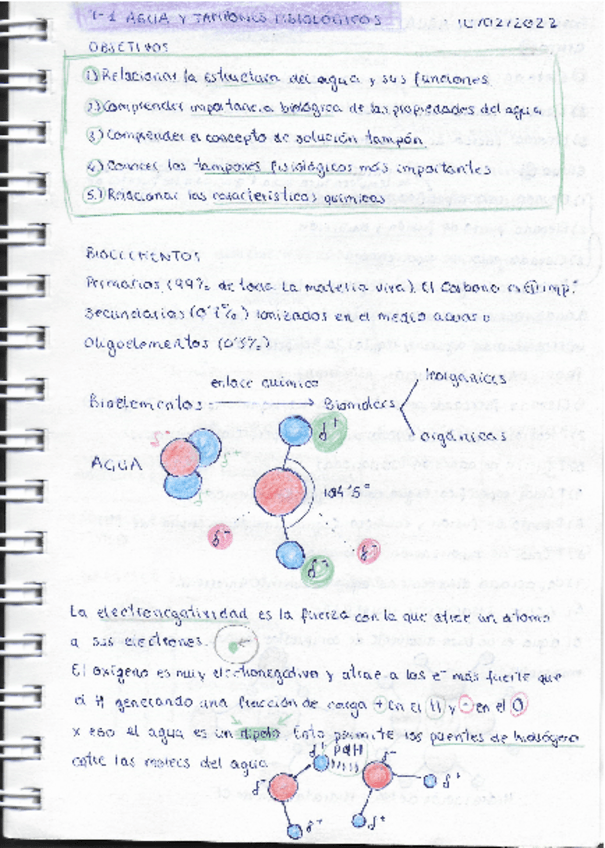 T-1 AGUA Y TAMPONES FISIOLÓGICOS 10/02/2022
OBJETIVOS
1) Relacionar la estructura del agua y sus funciones
2) Comprender importancia biológica de las propiedades del agua
3) Comprender el concepto de solución tampón
4) Conocer los tampones fisiológicos más importantes
5) Relacionar las características químicas
BIOELEMENTOS
Primarios (99% de toda la materia viva). El Carbono es el + imp.
Secundarios ionizados en el medio acuoso
Oligoelementos
enlace químico
Bioelementos → Biomolecs
Inorgánicas
orgánicas
AGUA
δ+
104'5°
δ- δ-
La electronegatividad es la fuerza con la que atrae un átomo
a sus electrones. e-
El oxígeno es muy electronegativo y atrae a los e- más fuerte que
el H generando una fracción de carga + en el H y - en el O
x eso el agua es un dipolo. Esto permite los puentes de hidrógeno
entre las molecs del agua.
δ+ PdH δ-
δ- δ+
δ+ δ+